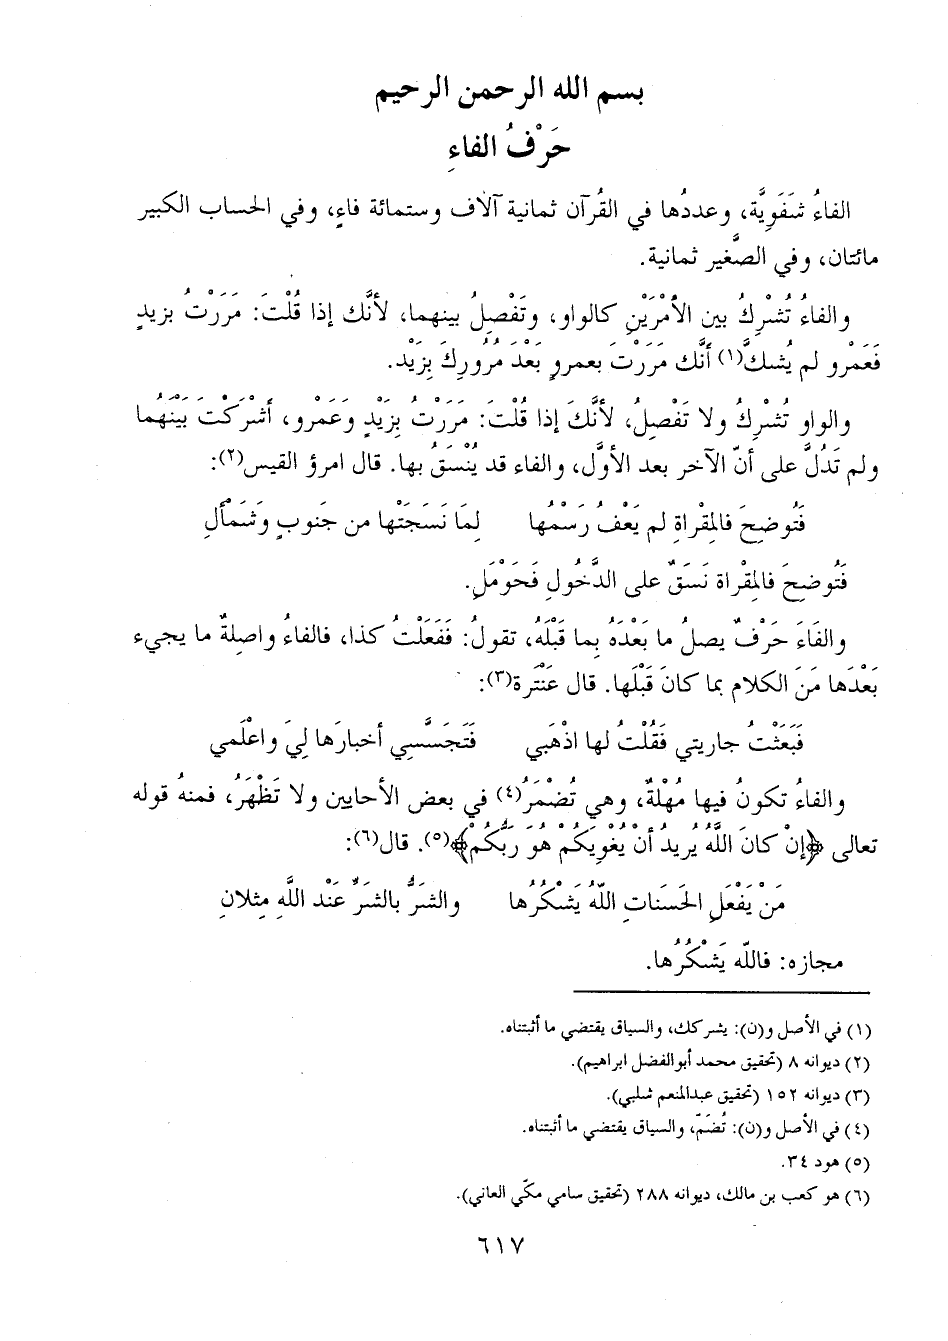 بسم الله الرحمن الرحيم
حَرْفُ الفاءِ
الفاءُ شَفَوِيَّة، وعددُها في القُرآن ثمانية آلاف وستمائة فاءٍ، وفي الحساب الكبير
مائتان، وفي الصَّغير ثمانية.
والفاءُ تُشْرِكُ بين الأمْرَيْنِ كالواو، وتَفْصِلُ بينهما، لأنَّك إذا قُلْتَ: مَرَرْتُ بزيدٍ
فَعَمْرو لم يُشكَّ(١) أنَّك مَرَرْتَ بعمروٍ بَعْدَ مُرُورِكَ بِزَيْد.
والواو تُشْرِكُ ولا تَفْصِلُ، لأنَّكَ إذا قُلْتَ: مَرَرْتُ بِزَيْدٍ وعَمْرو، أشْرَكْتَ بَيْنَهُما
ولم تَدُلَّ على أنّ الآخر بعد الأوَّل، والفاء قد يُنْسَقُ بها. قال امرؤ القيس(٢):
فَتُوضِحَ فالمِقْراةِ لم يَعْفُ رَسْمُها لِمَا نَسَجَتْها من جَنوبٍ وشَمْألِ
فَتُوضِحَ فالمِقْراة نَسَقٌ على الدَّخُولِ فَحَوْمَلِ.
والفَاءَ حَرْفٌ يصلُ ما بَعْدَهُ بِما قَبْلَهُ، تقولُ: فَفَعَلْتُ كذا، فالفاءُ واصِلةٌ ما يجيء
بَعْدَها مَنَ الكلام بما كانَ قَبْلَها. قال عَنْتَرة(٣):
فَبَعَثْتُ جاريتي فَقُلْتُ لها اذْهَبي فَتَجَسَّسِي أخبارَها لِيَ واعْلَمي
والفاءُ تكونُ فيها مُهْلةٌ، وهي تُضْمَرُ(٤) في بعض الأحايين ولا تَظْهَرُ، فمنهُ قوله
تعالى ﴿إنْ كانَ اللَّهُ يُريدُ أنْ يُغْوِيَكُمْ هُوَ رَبُّكُمْ﴾(٥). قال(٦):
مَنْ يَفْعَلِ الحَسَناتِ اللّهُ يَشْكُرُها والشَرُّ بالشَرِّ عَنْد اللَّهِ مِثلانِ
مجازه: فاللّه يَشْكُرُها.
(١) في الأصل و(ن): يشركك، والسياق يقتضي ما أثبتناه.
(٢) ديوانه ٨ (تحقيق محمد أبوالفضل ابراهيم).
(٣) ديوانه ١٥٢ (تحقيق عبدالمنعم شلبي).
(٤) في الأصل و(ن): تُضَمّ، والسياق يقتضي ما أثبتناه.
(٥) هود ٣٤.
(٦) هو كعب بن مالك، ديوانه ٢٨٨ (تحقيق سامي مكّي العاني).
٦١٧